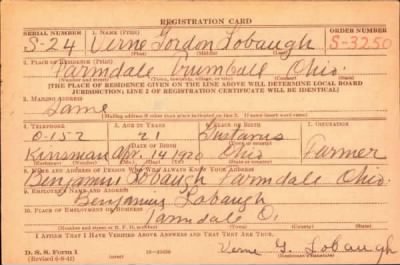 REGISTRATION CARD
SERIAL NUMBER 1. NAME (Print) ORDER NUMBER
S-24 Verne Gordon Lobaugh S-3250
(First) (Middle) (Last)
2. PLACE OF RESIDENCE (Print)
Farmdale Trumball Ohio
(Number and street) (Town, township, village, or city) (County) (State)
[THE PLACE OF RESIDENCE GIVEN ON THE LINE ABOVE WILL DETERMINE LOCAL BOARD
JURISDICTION; LINE 2 OF REGISTRATION CERTIFICATE WILL BE IDENTICAL]
3. MAILING ADDRESS
Same
[Mailing address if other than place indicated on line 2. If same insert word same]
4. TELEPHONE 5. AGE IN YEARS 6. PLACE OF BIRTH 7. OCCUPATION
0-152 21 Gustavus
Kinsman Apr 14 1920 Ohio Farmer
8. NAME AND ADDRESS OF PERSON WHO WILL ALWAYS KNOW YOUR ADDRESS
Benjamin Lobaugh Farmdale Ohio
9. EMPLOYER'S NAME AND ADDRESS
Benjamin Lobaugh
10. PLACE OF EMPLOYMENT OR BUSINESS
Farmdale O.
(Number and street or R. F. D. number) (Town) (County) (State)
I AFFIRM THAT I HAVE VERIFIED ABOVE ANSWERS AND THAT THEY ARE TRUE.
D. S. S. Form 1 Verne G. Lobaugh